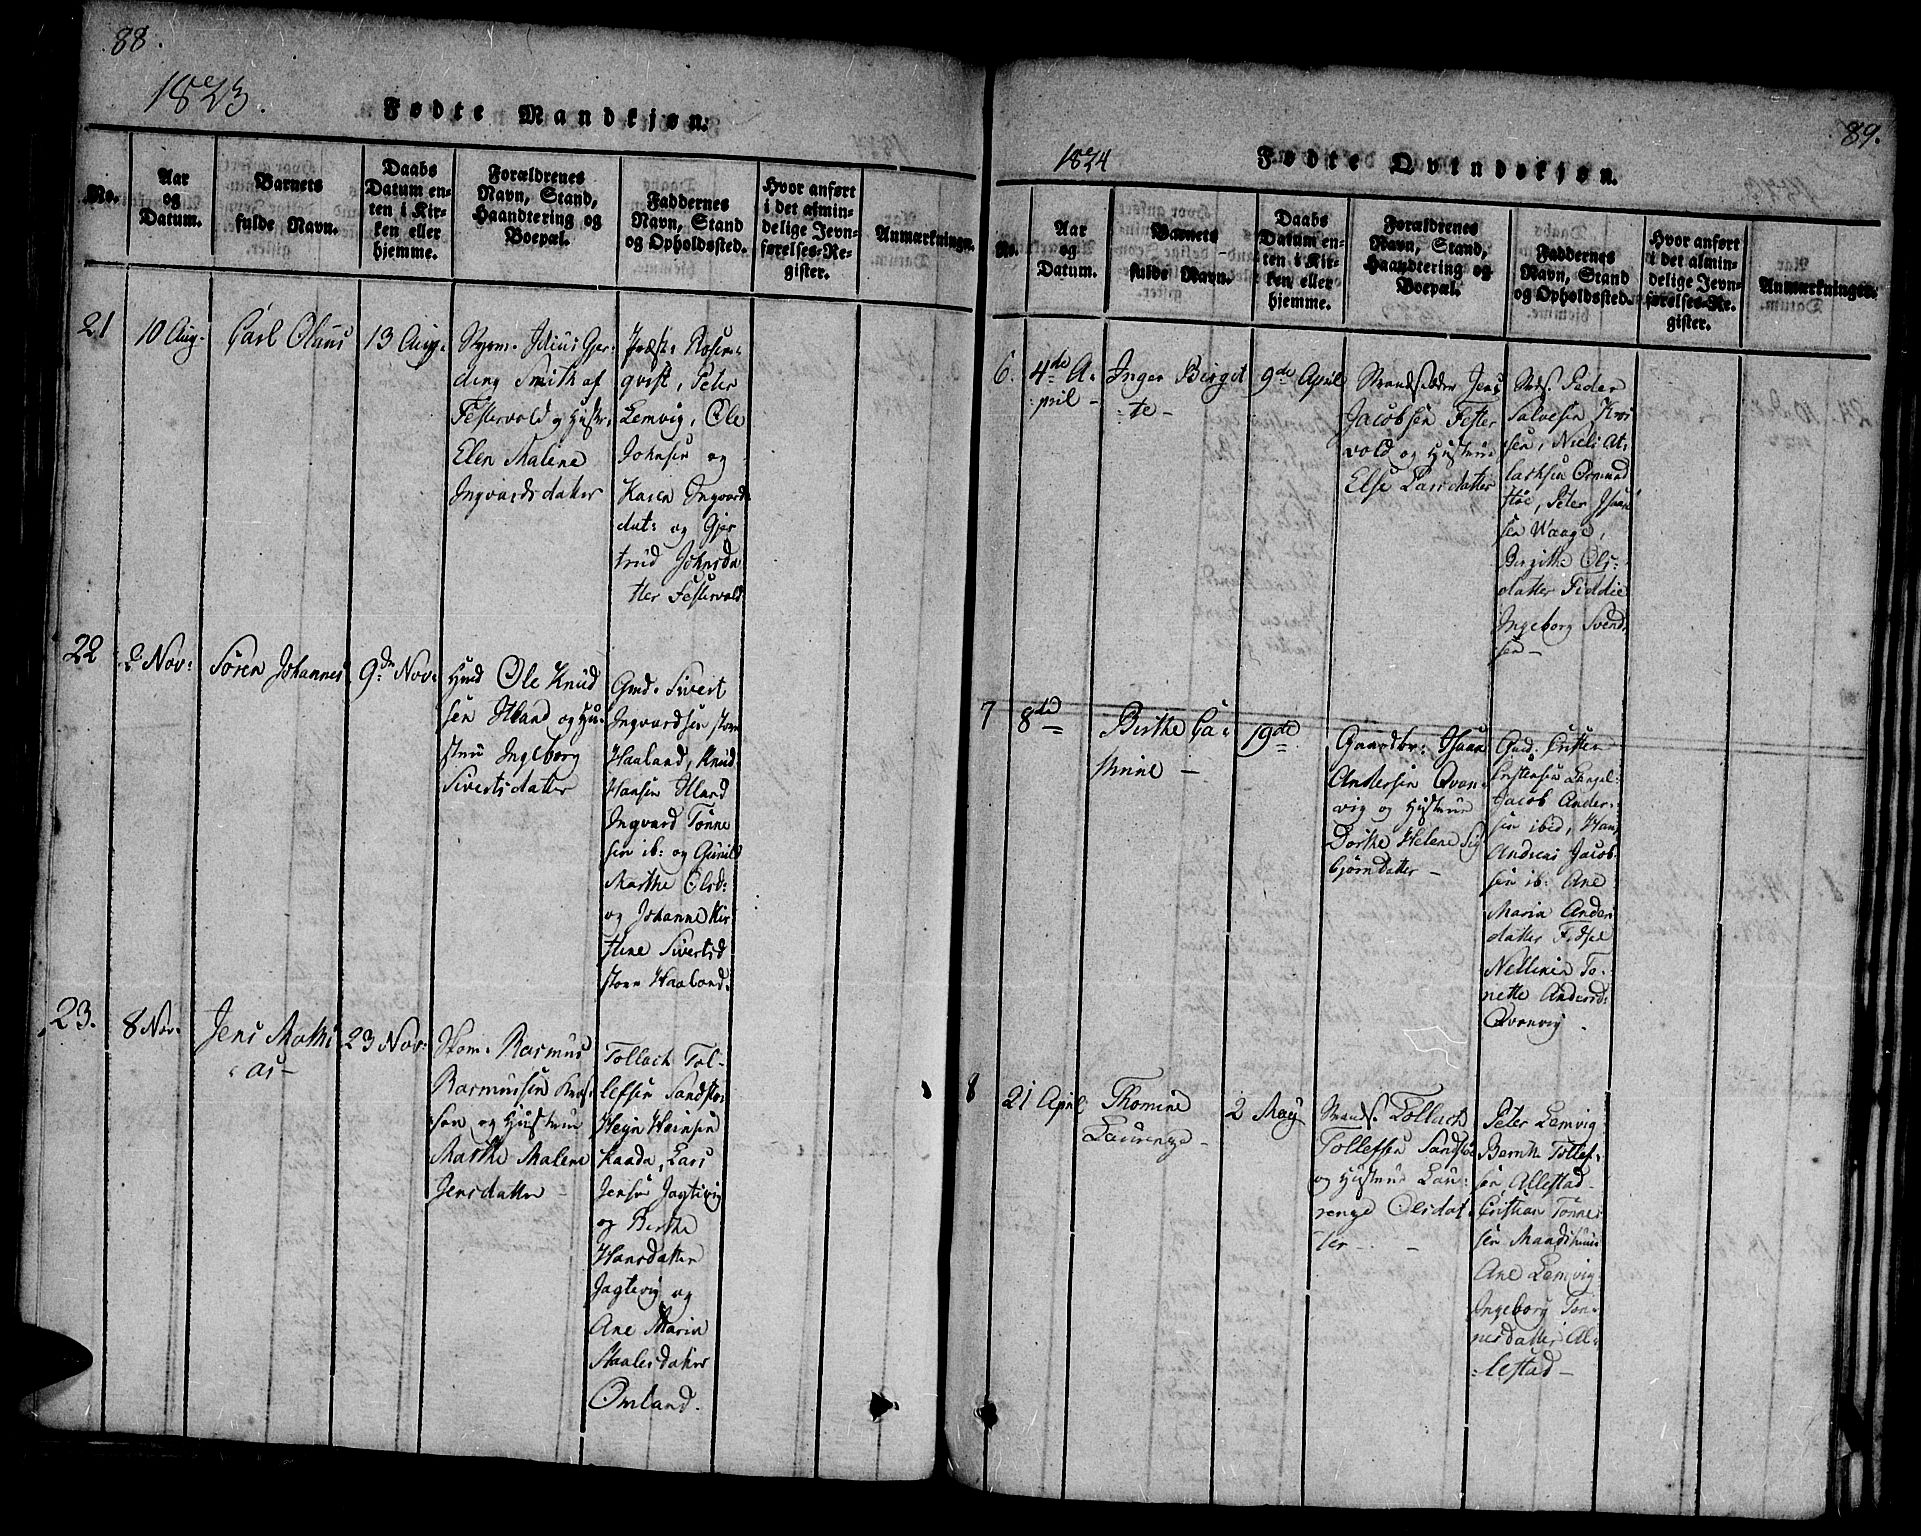 88.
1823.
Fødte Mandkjøn.
No.
Aar
og
Datum.
Barnets
fulde Navn.
Daabs
Datum en-
ten i Kir-
ken eller
hjemme.
Forældrenes
Navn, Stand,
Haandtering og
Boepæl.
Faddernes
Navn, Stand
og Opholdssted.
Hvor anført
i det almin-
delige Jevn-
førelses-Re-
gister.
Anmærkninger.
21
10 Aug.
Carl Olaus
13 Aug.
Smith af
Festervold og Hustr.
Elen Malene
Ingvardsdatter
Præst: Rosen-
qvist, Peter
Lemvig, Ole
Johnsen og
Karen Ingvard
dat: og Gjer
trud Johnsda
tter Festervold
22
2 Nov:
Søren Johannes
9de Nov:
Ole Knud
sen Hland og Hu-
stru Ingeborg
Sivertsdatter
Gmd. Sivert
Ingvardsen store
Haaland, Knud
Hansen Hland
Ingvard Tønne
sen ib: og Gunild
Marthe Olsd:
og Johanne Kir
stine Sivertsd
store Haaland.
23.
8 Nov.
Jens Mathi
as-
23 Nov:
Rasmus
Rasmussen
og Hustrue
Marthe Malene
Jensdatter
Tollach Tol-
lefsen Sandstø
Hejn Heinsen
Kaada, Lars
Jensen Jagtevig
og Berthe
Hansdatter
Jagtevig og
Ane Maria
Staalesdatter
Omland.
89.
1824
Fødte Qvindekjøn.
No.
Aar
og
Datum.
Barnets
fulde Navn.
Daabs
Datum en-
ten i Kir-
ken eller
hjemme.
Forældrenes
Navn, Stand,
Haandtering og
Boepæl.
Faddernes
Navn, Stand
og Opholdssted.
Hvor anført
i det almin-
delige Jevn-
førelses-Re-
gister.
Anmærkninger.
6.
4de A-
pril -
Inger Birgit
te-
9de April
Strandsidder Jens
Jacobsen Fester
vold og Hustrue
Else Larsdatter
Peder
Salvesen
Niels At-
lacksen
Peter Isaac
sen Waage,
Birgithe Ols-
datter Fiddie
Ingeborg Svend
sen-
7
8de
Birthe Ca-
thrine -
19de
Gaardbr: Isaac
Andersen Qvan-
vig og Hustrue
Dorthe Helene Sig
bjørndatter -
Cristen
Cristensen
Jacob Ander-
sen ibid, Hans
Andreas Jacob
sen ib: Ane
Maria Anders
datter Fidsel
Nelline To-
nette Andersd:
Qvanvig.
8
21 April
Thomine
Laurenze -
2 May
Strands. Tollach
Tollefsen Sandstø
og Hustrue Lau-
renze Olsdat-
ter - -
Peter Lemvig
Bernt Tollef-
sen Allestad
Cristian Tønne
sen
Ane Lemvig
Ingeborg Tøn-
nesdatter Al-
lestad -